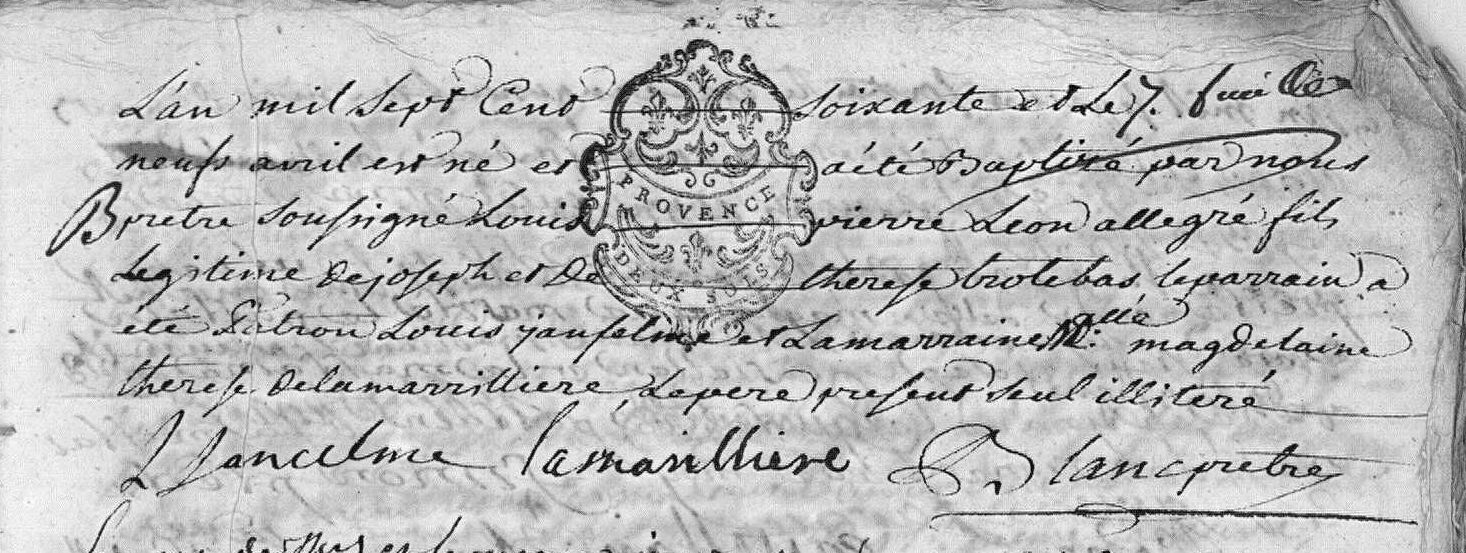 L'an mil sept cent soixante et Le 7.
neufs avril est né et a été Baptisé par nous
PROVENCE
Bpretre soussigné Louis pierre Leon allegré fils
Legitime de joseph et de therese trotebas le parrain a
DEUX SOLS
été Patron Louis janselme et La marraine Mlle magdelaine
therese de lamarrilliere, Le pere present seul illiteré
L Jancelme lamarilliere Blanc pretre